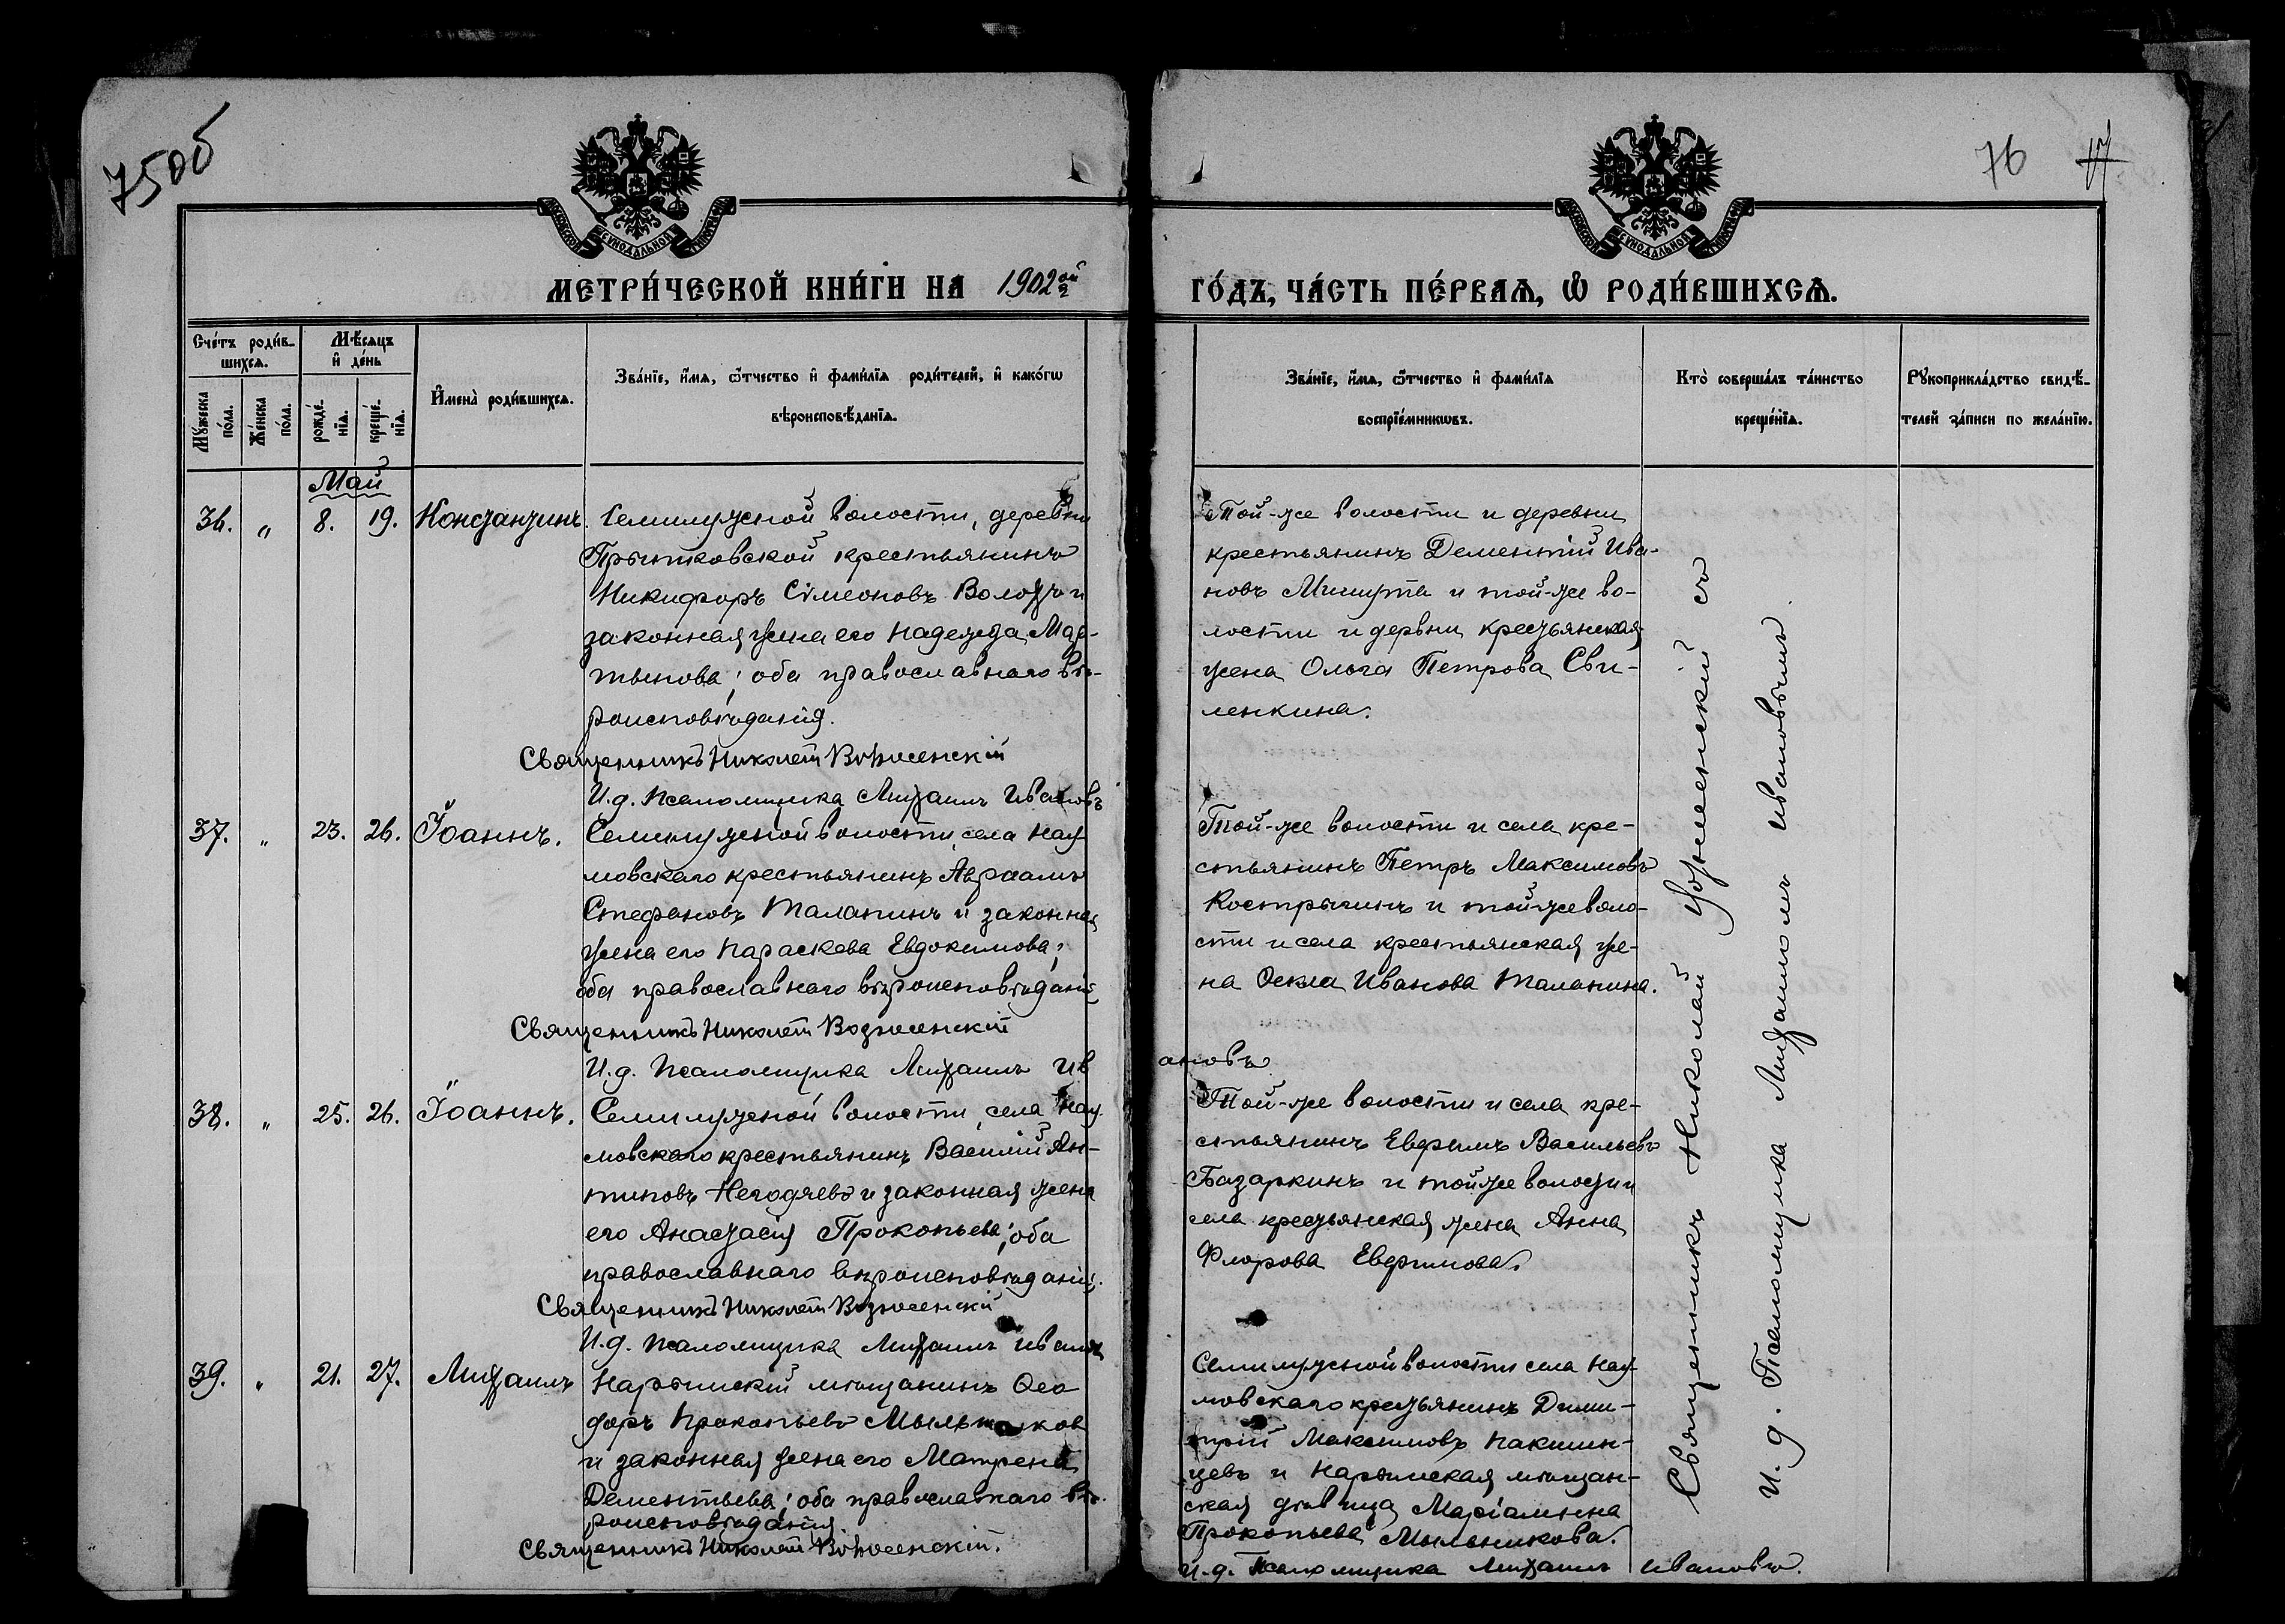 75об
76
17
МЕТРИ́ЧЕСКОЙ КНИ́ГИ НА 1902 ой
ГО́ДЪ, ЧА́СТЬ ПЕ́РВАѦ, Ѡ҆ РОДИ́ВШИХСѦ.
Сче́тъ роди́в-
шихсѧ.
Мꙋ́жеска по́ла.
Же́нска по́ла.
Мѣ́сѧцъ
и҆ де́нь
рожде́-
нїѧ.
креще́-
нїѧ.
И҆мена̀ роди́вшихсѧ.
Зва́нїе, и҆́мѧ, ѻ҆́тчество и҆ фами́лїѧ роди́телей, и҆ како́гѡ
вѣроисповѣ́данїѧ.
Зва́нїе, и҆́мѧ, ѻ҆́тчество и҆ фами́лїѧ
воспрїе́мникѡвъ.
Кто̀ соверша́лъ та́инство
креще́нїѧ.
Рꙋкоприкла́дство свидѣ́-
телей за́писи по жела́нїю.
Май
36. „ 8. 19. Константинъ.
Семилужной волости, деревни
Прытковской крестьянинъ
Никифоръ Сімеоновъ и
законная жена его Надежда Мар-
тынова; оба православнаго вѣ-
роисповѣданія.
Священникъ Николай Вознесенскій
И.д. Псаломщика Михаилъ Ивановъ
Той-же волости и деревни
крестьянинъ Дементій Ива-
новъ и той-же во-
лости и дервни крестьянская
жена Ольга Петрова Сви-
ленкина.
37. „ 23. 26. Іоаннъ.
Семилужной волости, села Нау-
мовскаго крестьянинъ Авраамъ
Стефановъ Таланинъ и законная
жена его Параскева Евдокимова;
оба православнаго вѣроисповѣданія
Священникъ Николай Вознесенскій
И.д. Псаломщика Михаилъ Ив
ановъ
Той-же волости и села кре-
стьянинъ Петръ Максимовъ
Кострыкинъ и той-же воло-
сти и села крестьянская же-
на Ѳекла Иванова Таланина.
38. „ 25. 26. Іоаннъ.
Семилужной волости, села Нау-
мовскаго крестьянинъ Василій Ан-
типовъ Негодяевъ и законная жена
его Анастасія Прокопьева; оба
православнаго вѣроисповѣданія.
Священникъ Николай Вознесенскій
И.д. Псаломщика Михаилъ Ивановъ
Той-же волости и села кре-
стьянинъ Евфимъ Васильевъ
Базаркинъ и той же волости и
села крестьянская жена Анна
Флорова Евфимова.
39. „ 21. 27. Михаилъ
Нарымскій мѣщанинъ Ѳео
доръ Прокопьевъ Мыльников
и законная жена его Матрена
Дементьева; оба православнаго вѣ-
роисповѣданія.
Священникъ Николай Вознесенскій.
Семилужной волости села Нау-
мовскаго крестьянинъ Дими-
трій Максимовъ Пакшин-
цевъ и Нарымская мѣщан-
ская дѣвица Маріамна
Прокопьева Мыльникова.
И.д. Псаломщика Михаилъ Ивановъ.
Священникъ Николай Вознесенскій съ
И. д. Псаломщика Михаиломъ Ивановымъ.